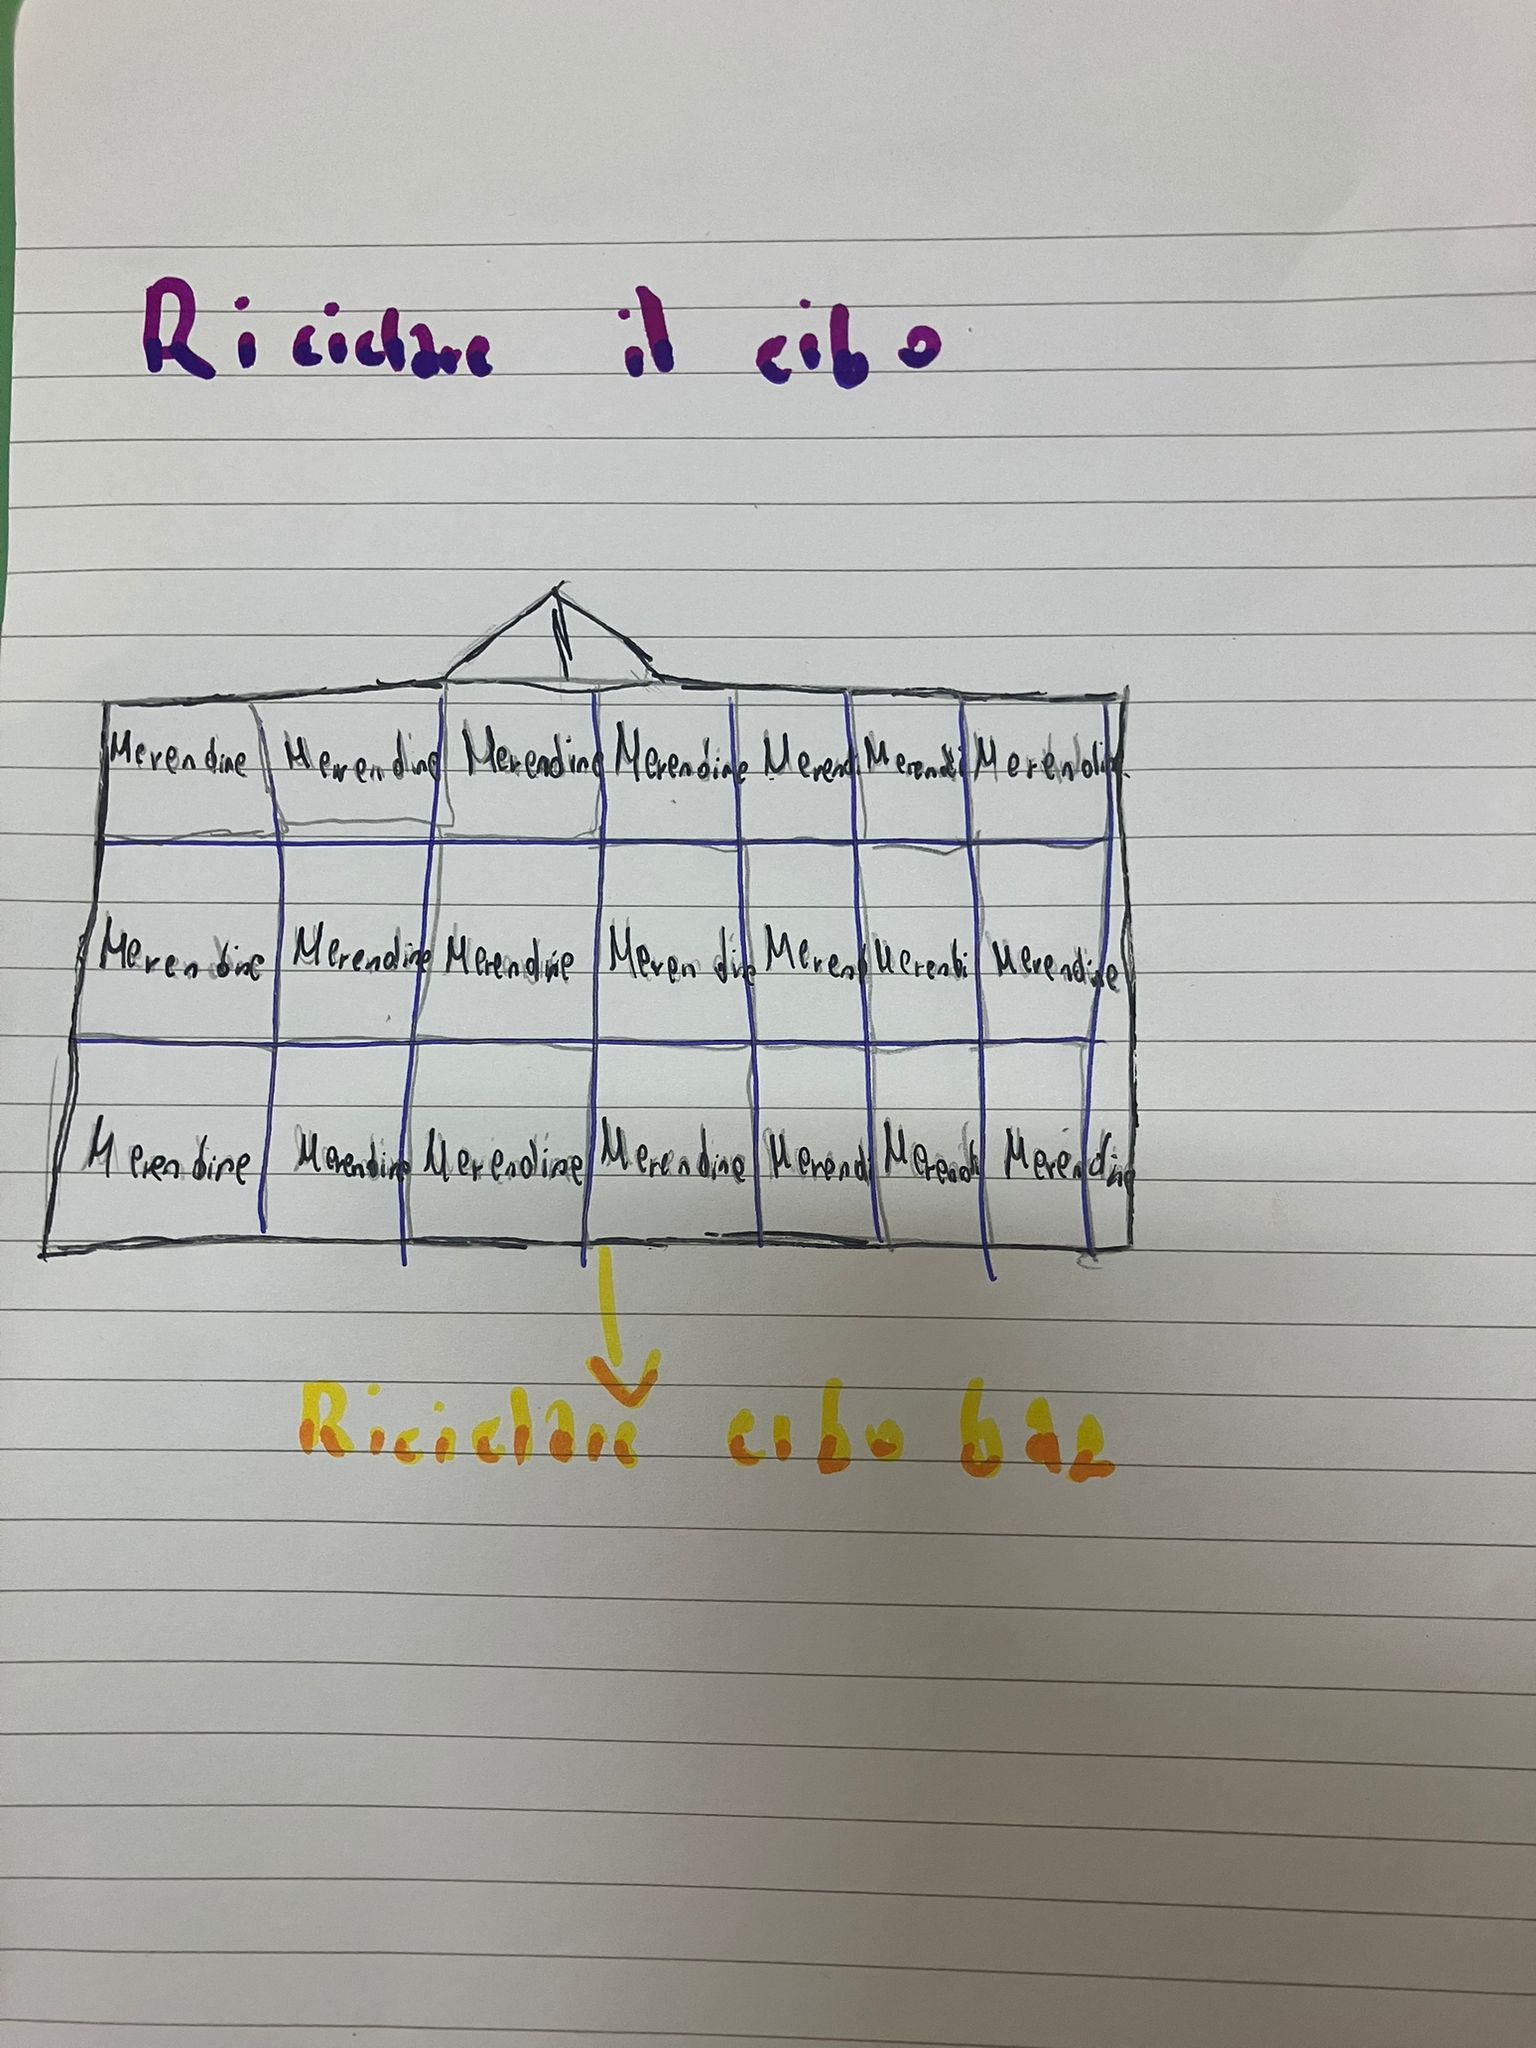 Riciclare il cibo
Merendine Merendine Merendine Merendine Merend Merendi Merendine
Merendine Merendine Merendine Merendine Merend Merendi Merendine
Merendine Merendine Merendine Merendine Merendi Merendi Merendine
Riciclare cibo